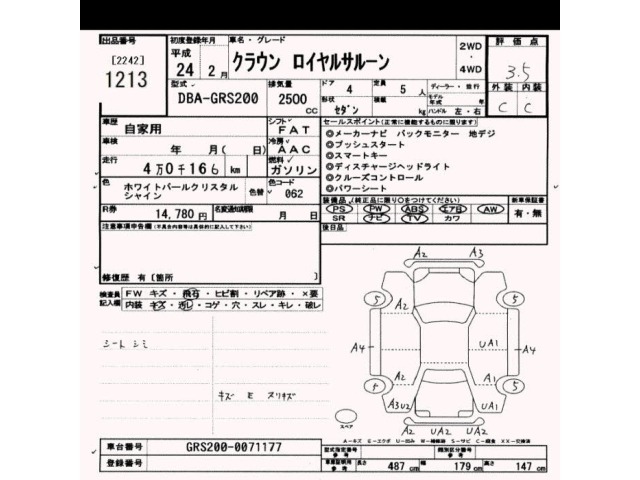 出品番号 初度登録年月 車名・グレード 2WD 評価点
[2242] 平成 クラウン ロイヤルサルーン ・ 3.5
1213 24年 2月 4WD 外装 内装
型式 排気量 ドア 4 定員 5人 ディーラー・並行 C C
DBA-GRS200 2500 CC 形状 セダン 積載 kg モデル年式 年 ハンドル 左・右
車歴 自家用 シフト FAT セールスポイント(正常に機能するものに限ります)
車検 年 月( 日) 冷房 AAC ◎メーカーナビ バックモニター 地デジ
走行 4万0千166 km 燃料 ガソリン ◎プッシュスタート
◎スマートキー
◎ディスチャージヘッドライト
◎クルーズコントロール
◎パワーシート
色 ホワイトパールクリスタルシャイン 色替 色コード 062
R券 14,780円 名変通知期限 月 日
装備品(純正品に限り○をつけてください) 新車保証書
PS PW ABS エアB AW 有・無
SR ナビ TV カワ
注意事項申告欄(不具合内容等は具体的に記入して下さい) 後日品
修復歴 有〔箇所 〕
検査員記入欄 FW キズ・飛石・ヒビ割・リペア跡・×要
内装 キズ・汚し・コゲ・穴・スレ・キレ・破レ
シートシミ
キズ E ヌリキズ
A2 A3
5 A2 5
A4 UA1 A4
5 A2 A1 5
A3U2 UA2
A2 UA2 A2
スペア
A-キズ E-エクボ U-凹み W-補修跡 S-サビ C-腐食 XX-交換済
車台番号 GRS200-0071177
登録番号
型式指定番号 参考 類別区分番号 参考
車庫証明用 参考 長さ 487cm 幅 179cm 高さ 147cm